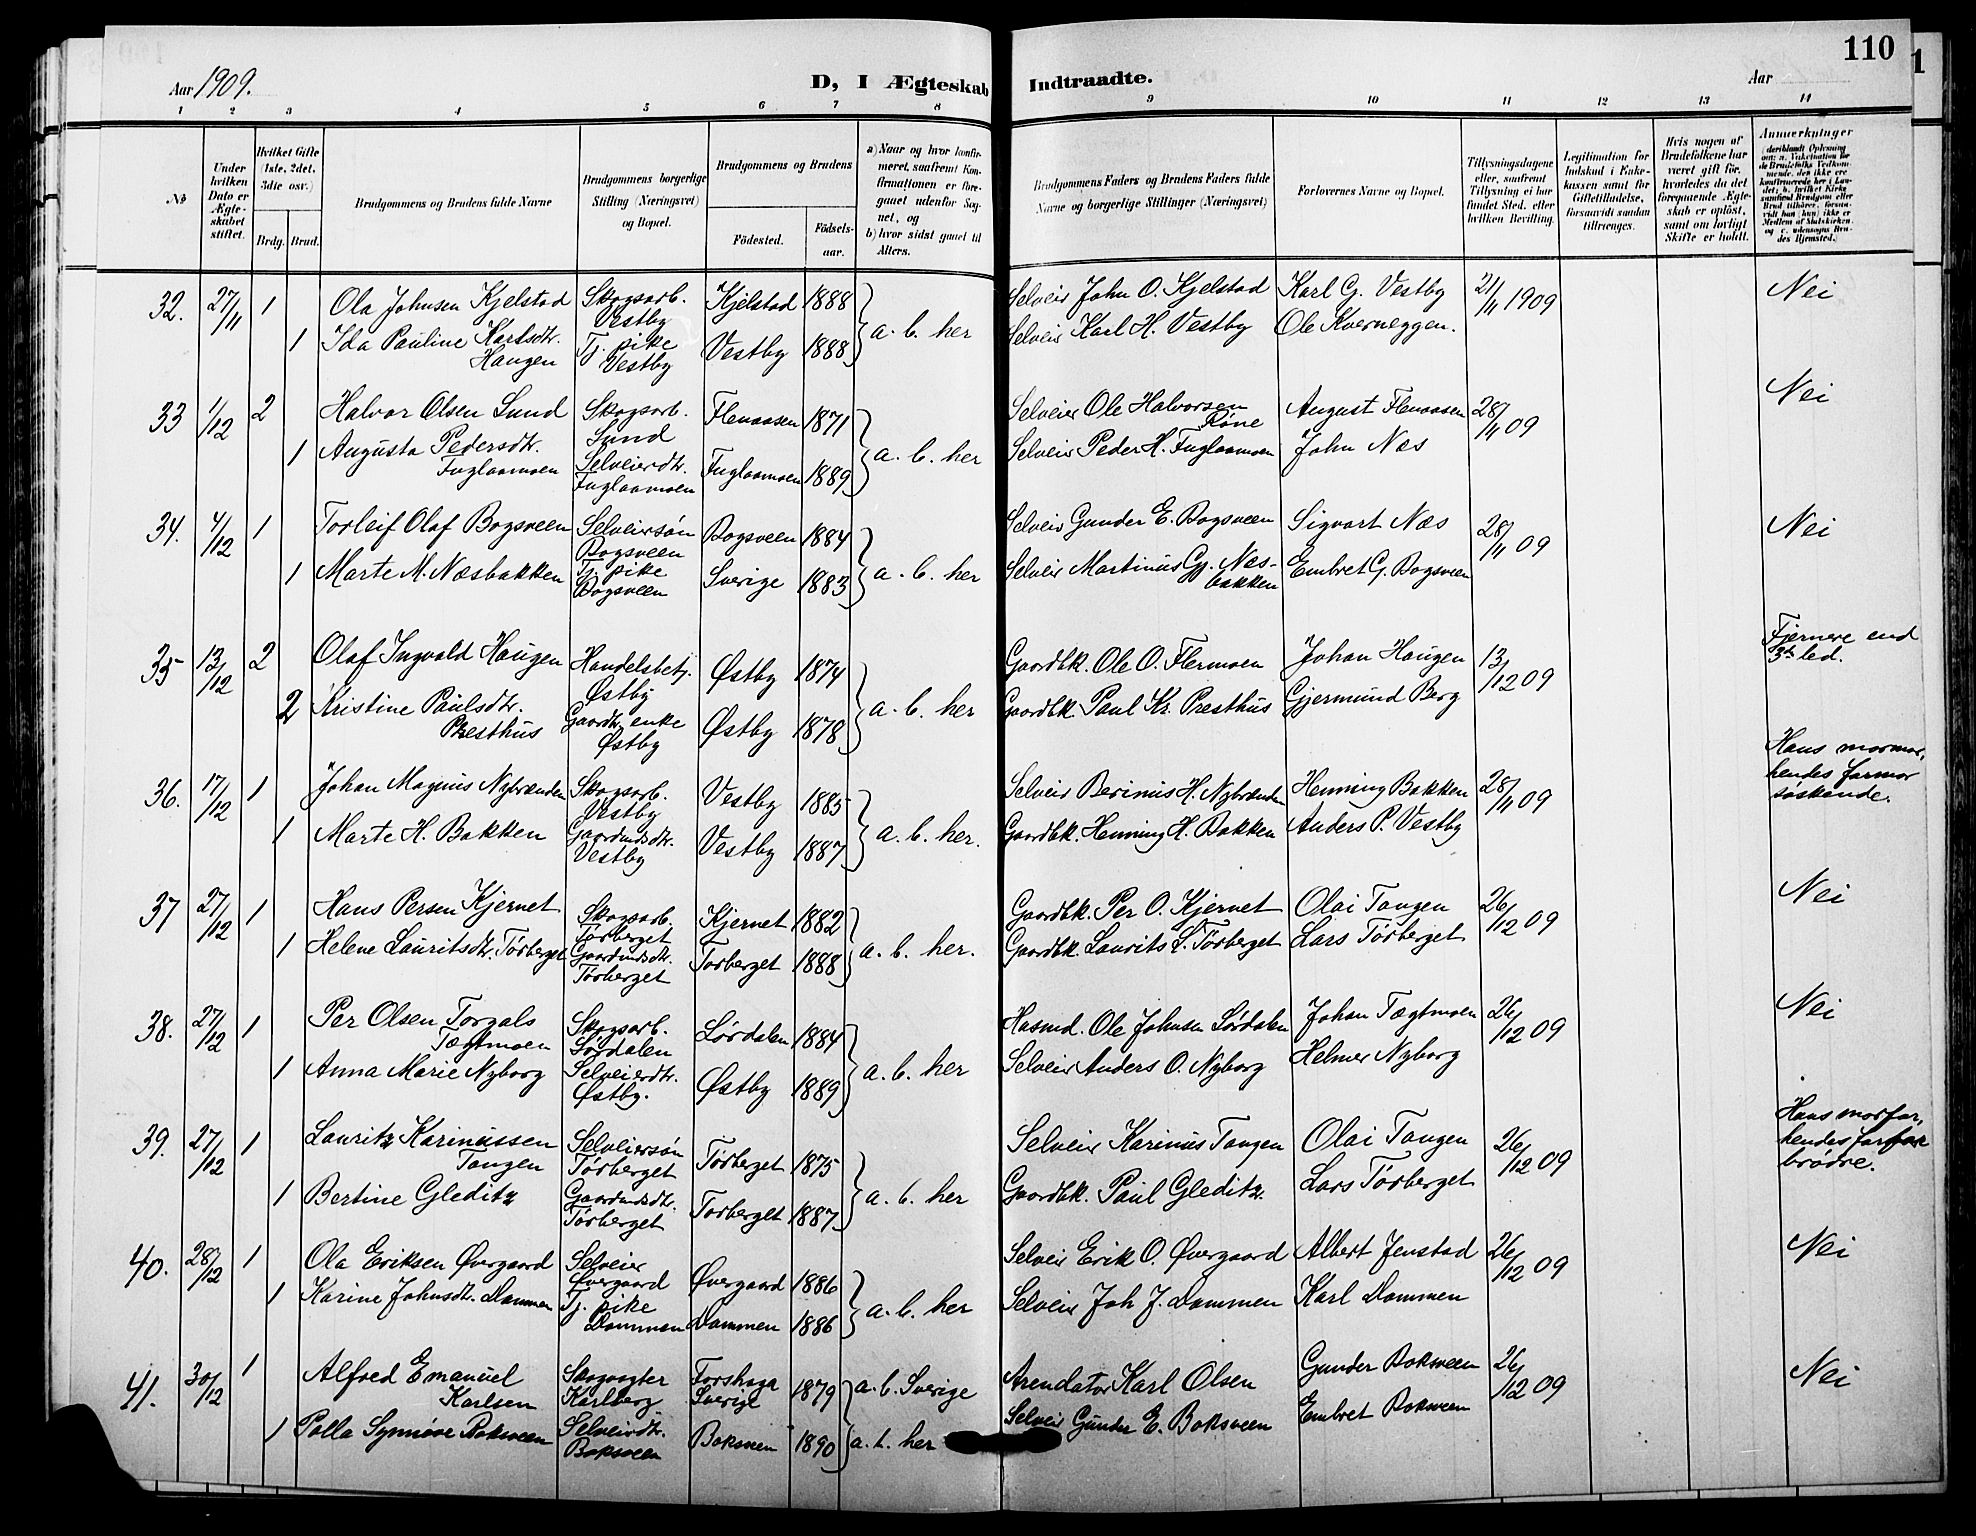 110
Aar 1909.
D, I Ægteskab Indtraadte.
Aar
1 2 3 4 5 6 7 8 9 10 11 12 13 14
No
Under hvilken Dato er Ægteskabet stiftet.
Hvilket Gifte (1ste, 2det, 3die osv.)
Brdg. Brud.
Brudgommens og Brudens fulde Navne
Brudgommens borgerlige Stilling (Næringsvei) og Bopæl.
Brudgommens og Brudens
Födested. Födselsaar.
a) Naar og hvor konfirmeret, saafremt Konfirmationen er foregaaet udenfor Sognet, og
b) hvor sidst gaaet til Alters.
Brudgommens Faders og Brudens Faders fulde Navne og borgerlige Stillinger (Næringsvei)
Forlovernes Navne og Bopæl.
Tillysningsdagene eller, saafremt Tillysning ei har fundet Sted, efter hvilken Bevilling.
Legitimation for Indskud i Enkekassen samt for Giftetilladelse, forsaavidt saadan tiltrænges.
Hvis nogen af Brudefolkene har været gift før, hvorledes da det foregaaende Ægteskab er oplöst, samt om lovligt Skifte er holdt.
Anmerkninger
32. 27/11 1 Ola Johnsen Kjelstad Skogsarb. Vestby Kjelstad 1888 a. b. her Selveier John O. Kjelstad Karl G. Vestby 21/11 1909 Nei
1 Ida Pauline Karlsdtr. Haugen Tj. pike Vestby Vestby 1888 Selveier Karl H. Vestby Ole Kverneggen.
33 1/12 2 Halvor Olsen Lund Skogsarb. Lund Flenaasen 1871 a. b. her Selveier Ole Halvorsen Røne August Flenaasen 28/11 09 Nei
1 Augusta Pedersdtr. Fuglaamoen Selveierdtr. Fuglaamoen Fuglaamoen 1889 Selveier Peder H. Fuglaamoen John Næs
34. 4/12 1 Torleif Olaf Bogsveen Selveiersøn Bogsveen Bogsveen 1884 a. b. her Selveier Gunder E. Bogsveen Sigvart Næs 28/11 09 Nei
1 Marte M. Næsbakken Tj. pike Bogsveen Sverige 1883 Selveier Martinus G. Næsbakken Embret G. Bogsveen
35 13/12 2 Olaf Ingvald Haugen Handelsbetj. Østby Østby 1874 a. b. her Gaardbk. Ole O. Flermoen Johan Haugen 13/12 09 Fjernere end 3die led.
2 Kristine Paulsdtr. Presthus Gaardbr. enke Østby Østby 1878 Gaardbk. Paul Kr. Presthus Gjermund Berg
36. 17/12 1 Johan Magnus Nybrænden Skogsarb. Vestby Vestby 1885 a. b. her. Selveier Berinus H. Nybrænden Henning Bakken 28/11 09 Hans mormor, hendes farmor søskende.
1 Marte H. Bakken Gaardmdsdtr. Vestby Vestby 1887 Gaardbk. Henning H. Bakken Anders P. Vestby
37 27/12 1 Hans Persen Kjernet Skogsarb. Tørberget Kjernet 1882 a. b. her. Gaardbk. Per O. Kjernet Olai Tangen 26/12 09 Nei
1 Helene Lauritsdtr. Tørberget Gaardmdsdtr. Tørberget Tørberget 1888 Gaardbk. Laurits L. Tørberget Lars Tørberget
38. 27/12 1 Per Olsen Torgals Tægtmoen Skogsarb. Sørdalen Lørdalen 1884 a. b. her Husmd. Ole Johnsen Sørdalen Johan Tægtmoen 26/12 09 Nei
1 Anna Marie Nyborg Selveierdtr. Østby. Østby 1889 Selveier Anders O. Nyborg Helmer Nyborg
39. 27/12 1 Lauritz Karinussen Tangen Selveiersøn Tørberget Tørberget 1875 a. b. her Selveier Karinus Tangen Olai Tangen 26/12 09 Hans morfar, hendes farfar brødre.
1 Bertine Gleditz Gaardmdsdtr. Tørberget Tørberget 1887 Gaardbk. Paul Gleditz. Lars Tørberget
40. 28/12 1 Ola Eriksen Øvergaard Selveier Øvergaard Øvergaard 1886 a. b. her Selveier Erik O. Øvergaard Albert Jenstad 26/12 09 Nei
1 Karine Johnsdtr. Dammen Tj. pike Dammen Dammen 1886 Selveier Joh J. Dammen Karl Dammen
41. 30/12 1 Alfred Emanuel Karlsen Skogvogter Karlberg Forshaga Sverige 1879 a. b. Sverige Arendator Karl Olsen Gunder Boksveen 26/12 09 Nei
1 Palla Synnøve Boksveen Selveierdtr. Boksveen Boksveen 1890 a. b. her Selveier Gunder E. Boksveen Embret Boksveen